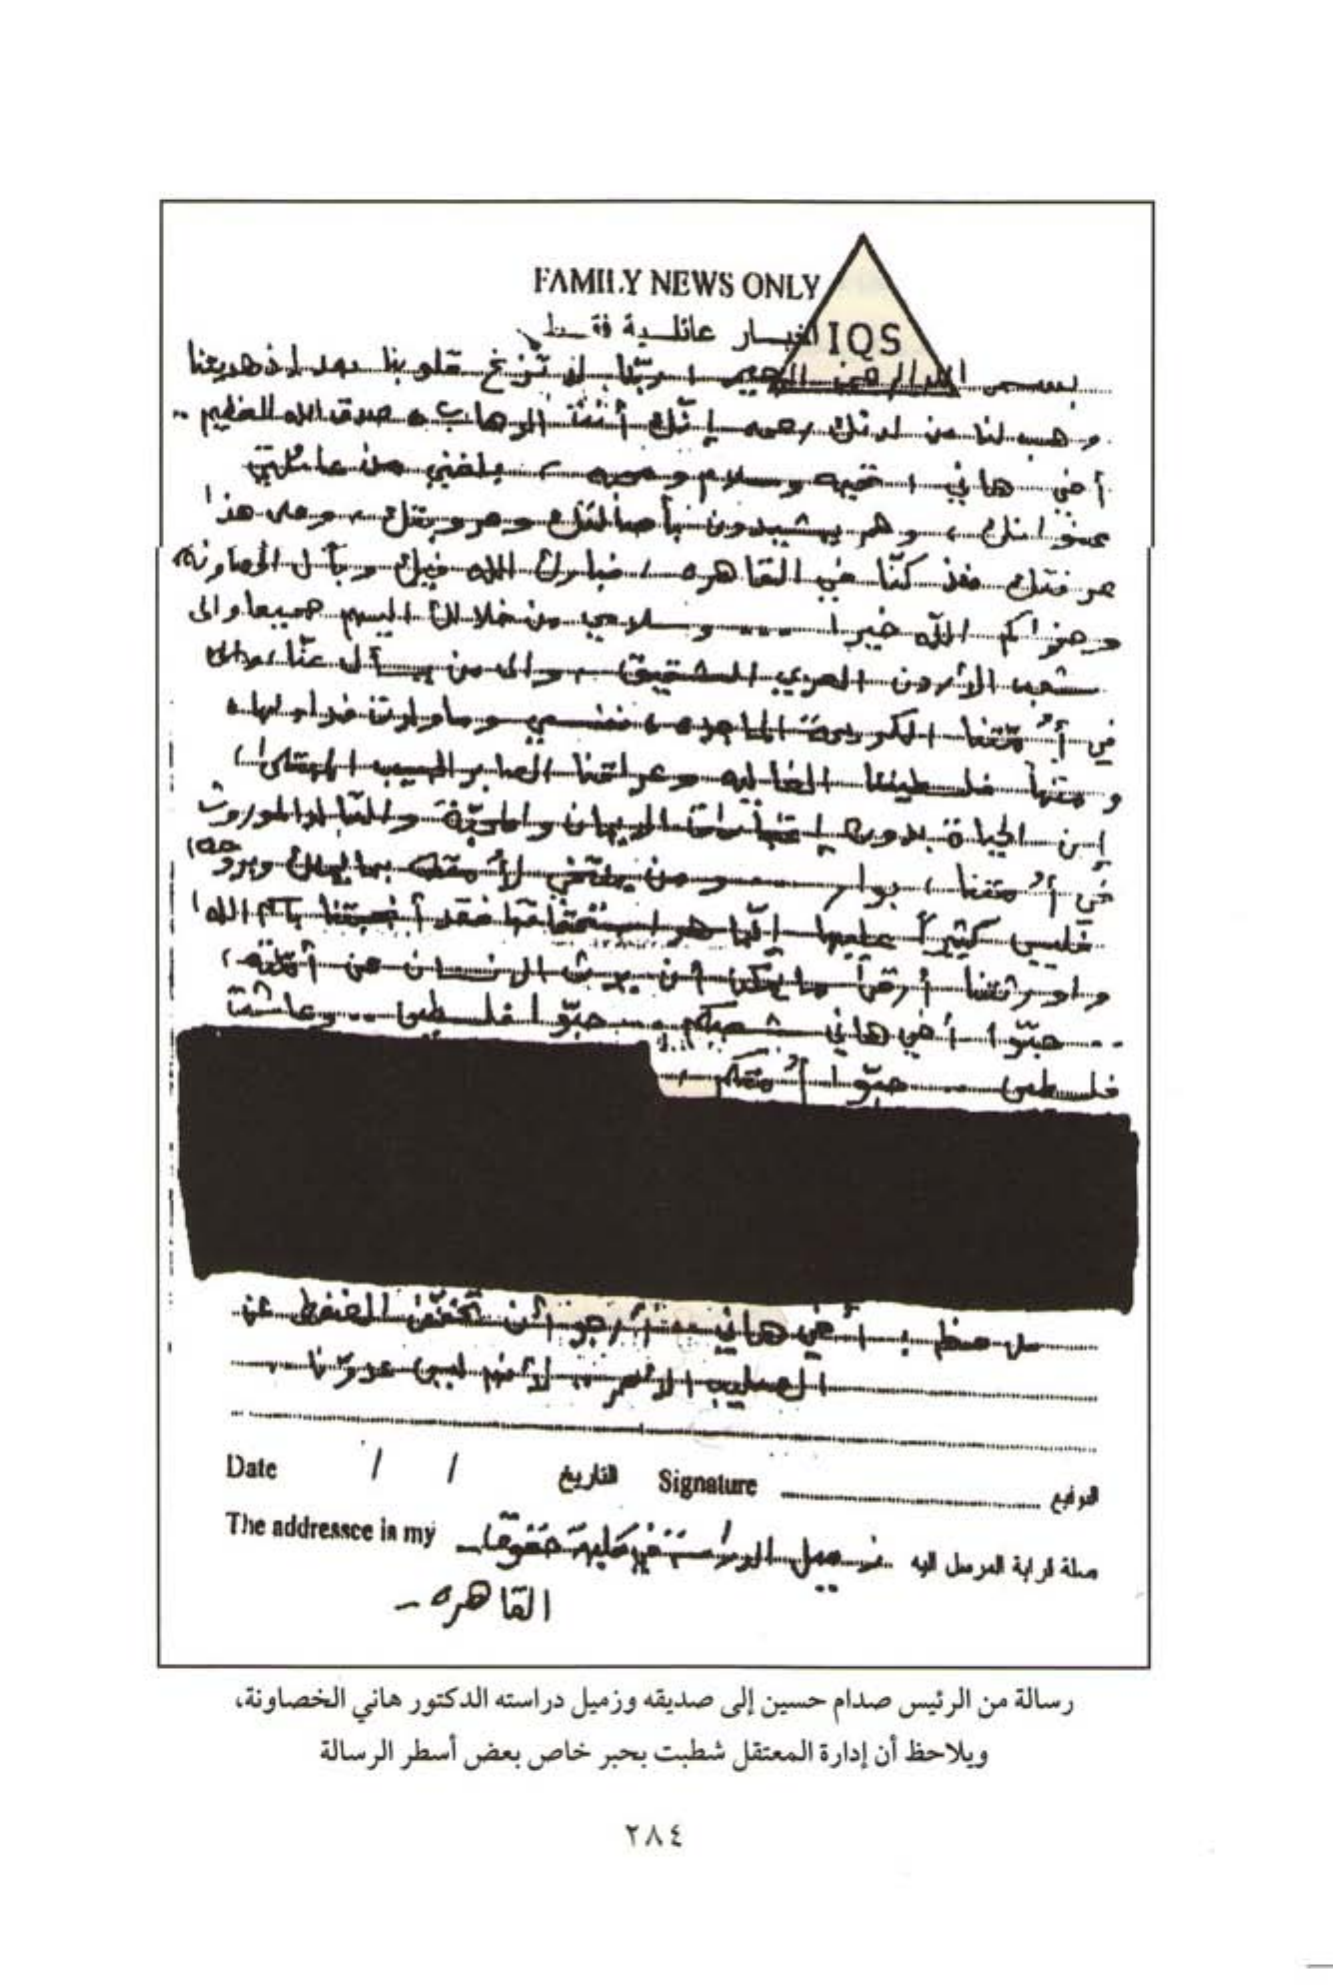 FAMILY NEWS ONLY
IQS
اخبار عائلية فقط
بسم الله الرحمن الرحيم ، ربّنا لا تزغ قلوبنا بعد إذ هديتنا
و هب لنا من لدنك رحمه إنّك أنت الوهاب ، صدق الله العظيم ..
أخي هاني ، تحيه وسلام ومحبه ، بلغني من عائلتي
عنوانك ، وهم يشيدون بأصالتك وعروبتك ، وعلى هذا
عرفتك منذ كنّا في القاهره ، فبارك الله فيك وبآل الخصاونه
وجزاكم الله خيرا .... وسلامي من خلالك اليهم جميعا والى
شعب الأردن العربي الشقيق ، والى من يسأل عنّا، والى
في أُمّتنا الكريمة الماجده ، نفسي وما ولدت فداء لها ،
ومنها فلسطيننا الغاليه وعراقنا الصابر الحبيب
إن الحياة بدون الايمان والمحبّة و الموروث
في أُمتنا ، بوار .... ومن لأمته بما يملك وبروحه ،
فليس كثيراً عليها إنّما هو استحقاقها فقد أنجبتنا بأمر الله ،
واورثتنا أرقى ما يمكن أن يرث الإنسان من أمّته ،
.. حيّوا أخي هاني شعبكم .. حيّوا فلسطين .. وعاشت
فلسطين .. حيّوا أُمتكم ..
ملاحظه : أخي هاني .. أرجو أن تخفّف الضغط عن
الصليب الأحمر .. لأنهم ليسوا عدوّنا ..
Date / / التاريخ Signature التوقيع
The addressee is my زميل الدراسة في كلية حقوق صلة قرابة المرسل اليه
القاهره -
رسالة من الرئيس صدام حسين إلى صديقه وزميل دراسته الدكتور هاني الخصاونة،
ويلاحظ أن إدارة المعتقل شطبت بحبر خاص بعض أسطر الرسالة
٢٨٤